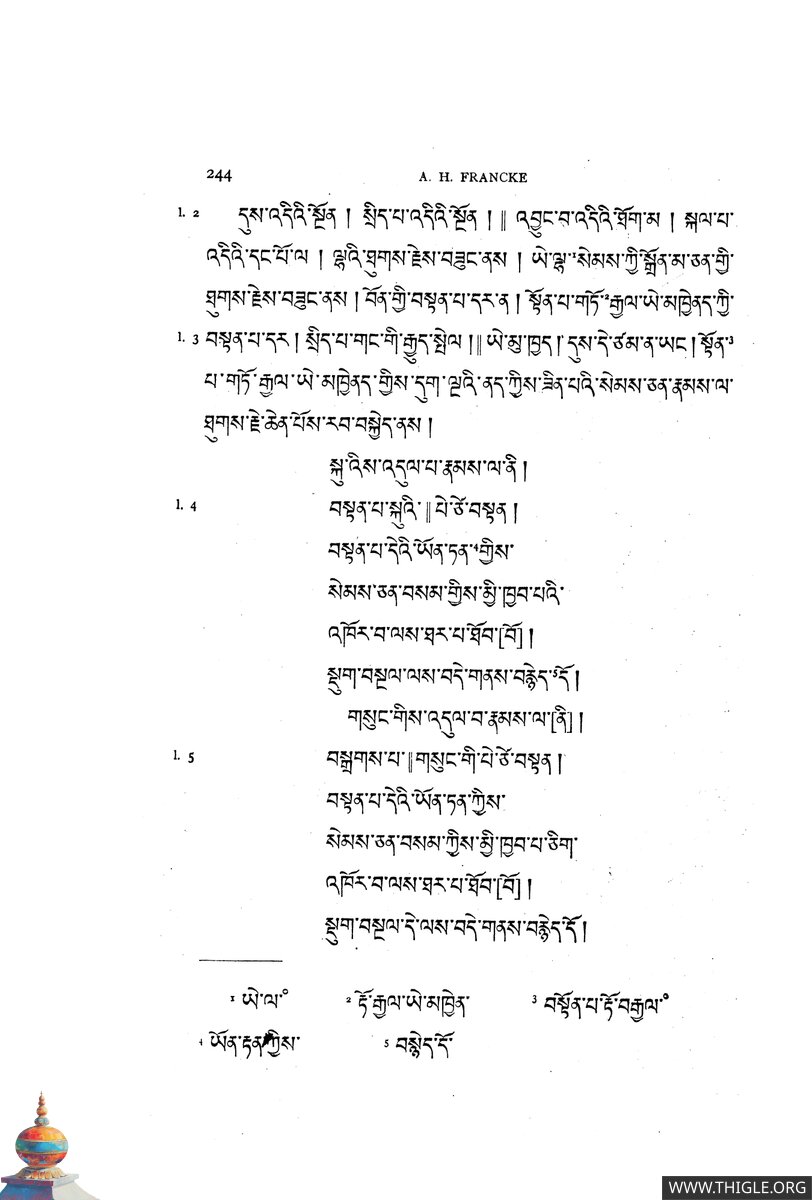 244 A. H. FRANCKE
l. 2 དུས་འདིའི་སྔོན། སྲིད་པ་འདིའི་སྔོན། ༎ འབྱུང་བ་འདིའི་ཐོག་མ། སྐལ་པ་
འདིའི་དང་པོ་ལ། ལྷའི་ཐུགས་རྗེས་བཟུང་ནས། ཡེ་ལྷ་¹སེམས་ཀྱི་སྒྲོན་མ་ཅན་གྱི་
ཐུགས་རྗེས་བཟུང་ནས། བོན་གྱི་བསྟན་པ་དར་ན། སྟོན་པ་གཏོ་²རྒྱལ་ཡེ་མཁྱེནད་ཀྱི་
l. 3 བསྟན་པ་དར། སྲིད་པ་གང་གི་རྒྱུད་སྤེལ། ༎ ཡེ་མུ་ཁྱད། དུས་དེ་ཙམ་ན་ཡང། སྟོན་³
པ་གཏོ་རྒྱལ་ཡེ་མཁྱེནད་གྱིས་དུག་ལྔའི་ནད་ཀྱིས་ཟིན་པའི་སེམས་ཅན་རྣམས་ལ་
ཐུགས་རྗེ་ཆེན་པོས་རབ་བསྐྱེད་ནས།
སྐུ་འིས་འདུལ་པ་རྣམས་ལ་ནི།
l. 4 བསྟན་པ་སྐུའི་༎པེ་ཙོ་བསྟན།
བསྟན་པ་དེའི་ཡོན་ཏན་⁴གྱིས་
སེམས་ཅན་བསམ་གྱིས་མྱི་ཁྱབ་པའི་
འཁོར་བ་ལས་ཐར་པ་ཐོབ་[བོ]།
སྡུག་བསྔལ་ལས་བདེ་གནས་བརྙེད་⁵དོ།
གསུང་གིས་འདུལ་བ་རྣམས་ལ་[ནི]།
l. 5 བསྒྲགས་པ་༎གསུང་གི་པེ་ཙོ་བསྟན།
བསྟན་པ་དེའི་ཡོན་ཏན་ཀྱིས་
སེམས་ཅན་བསམ་ཀྱིས་མྱི་ཁྱབ་པ་ཅིག་
འཁོར་བ་ལས་ཐར་པ་ཐོབ་[བོ]།
སྡུག་བསྔལ་དེ་ལས་བདེ་གནས་བརྙེད་དོ།
¹ ཡེ་ལ་° ² ཏོ་རྒྱལ་ཡེ་མཁྱེན་ ³ བསྟོན་པ་ཏོ་བརྒྱལ་°
⁴ ཡོན་རྟན་ཀྱིས་ ⁵ བསྙེད་དོ་
WWW.THIGLE.ORG